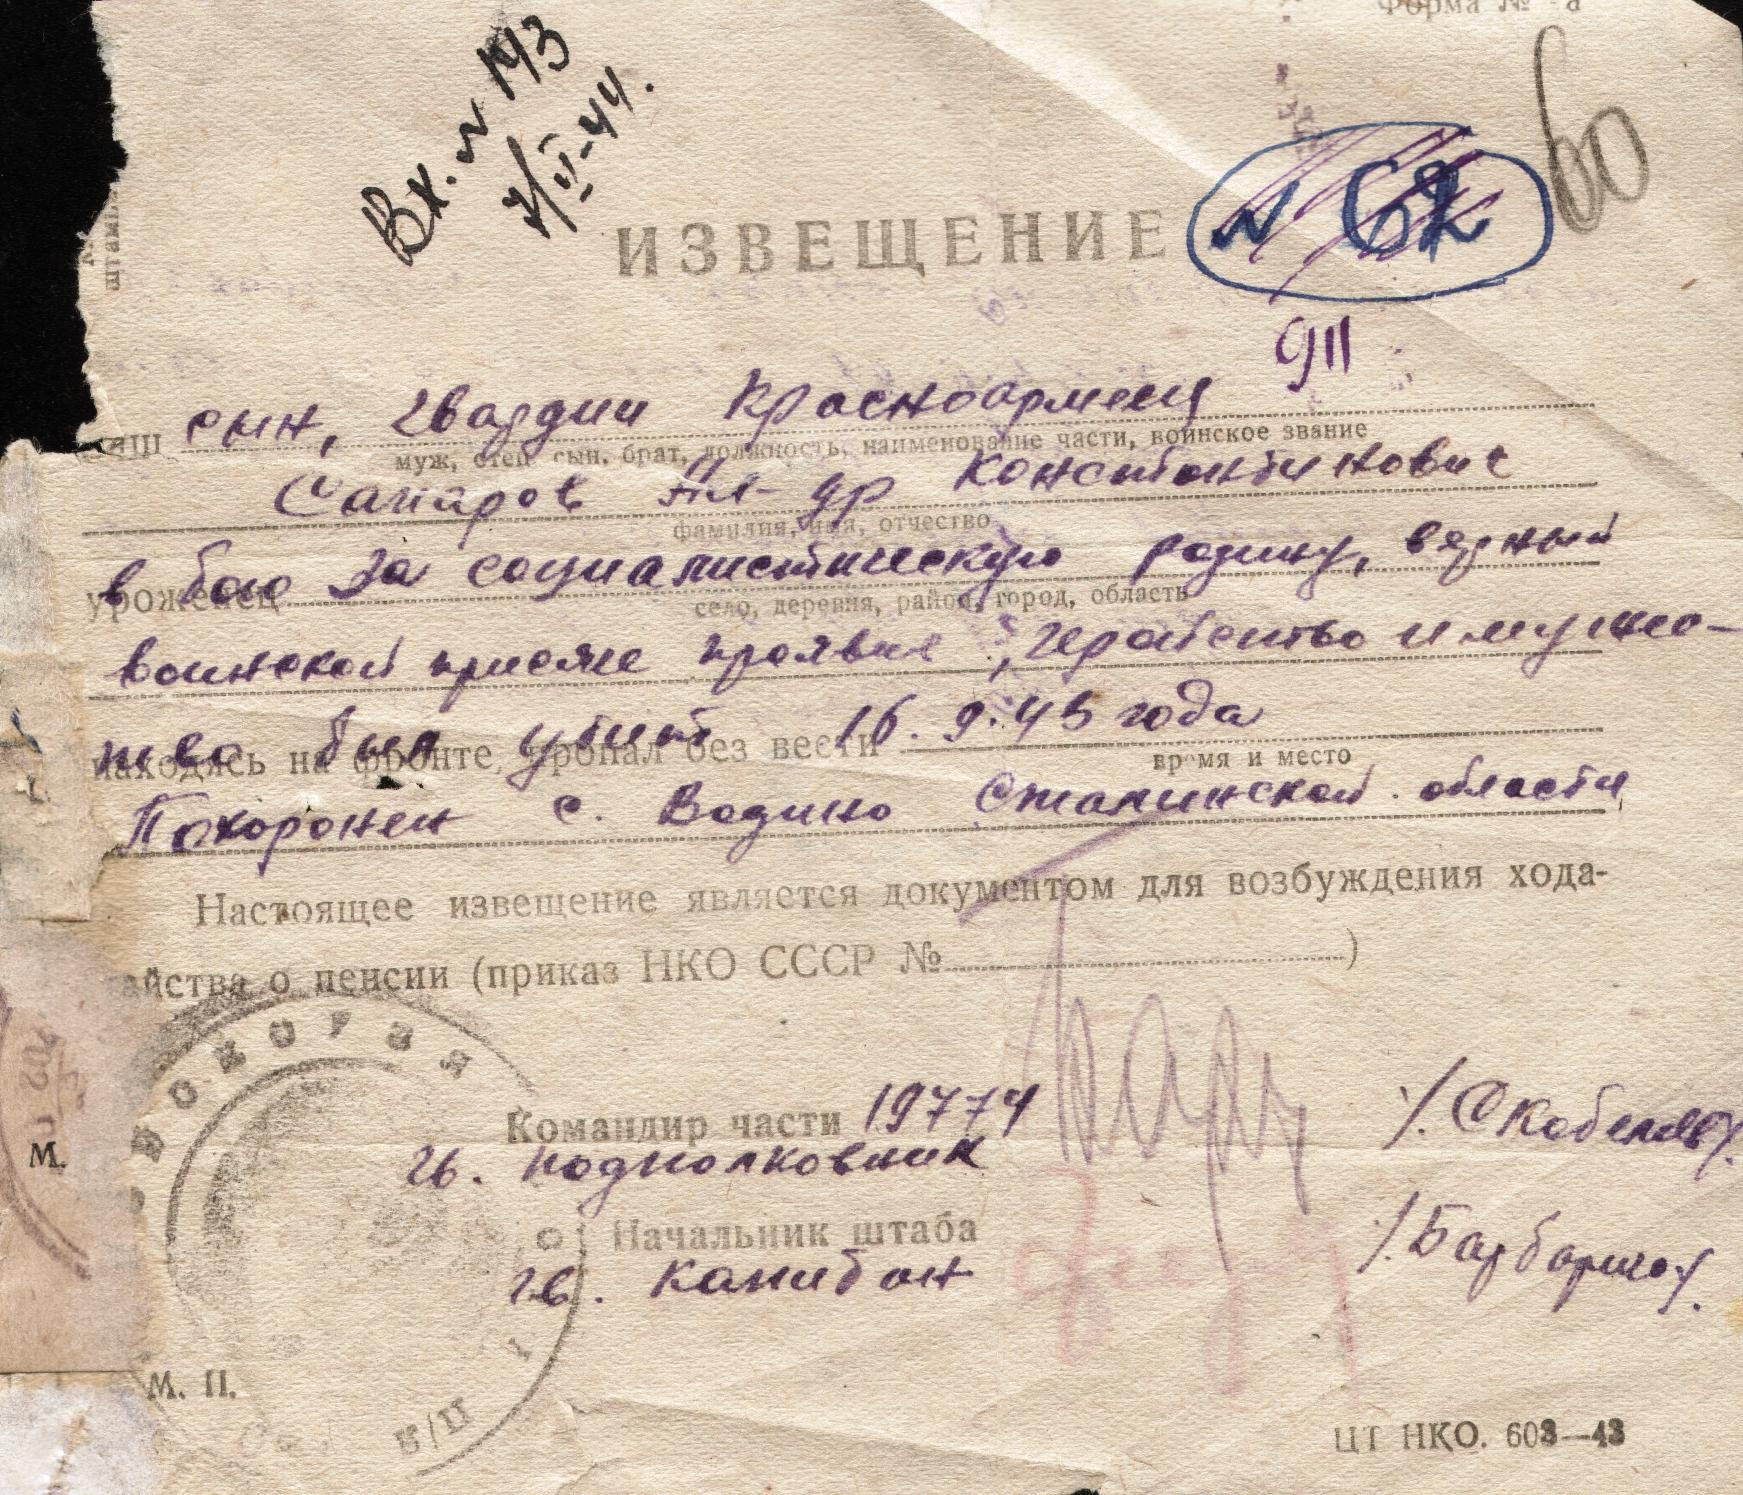 Форма №
Вх. № 143
7/II-44.
60
ИЗВЕЩЕНИЕ
№ 62
911
Ваш сын, гвардии красноармеец
муж, отец, сын, брат, должность, наименование части, воинское звание
Сапаров Ал-др Константинович
фамилия, имя, отчество
уроженец
в бою за социалистическую родину, верный
село, деревня, район, город, область
воинской присяге проявив, геройство и муже-
ство был убит 16.9.43 года
находясь на фронте, пропал без вести
время и место
Похоронен с. Водино Сталинской области
Настоящее извещение является документом для возбуждения хода-
тайства о пенсии (приказ НКО СССР № )
Командир части 19774
гв. подполковник /Скобелев/.
Начальник штаба
гв. капитан
М.
М. П.
ЦТ НКО. 603—43